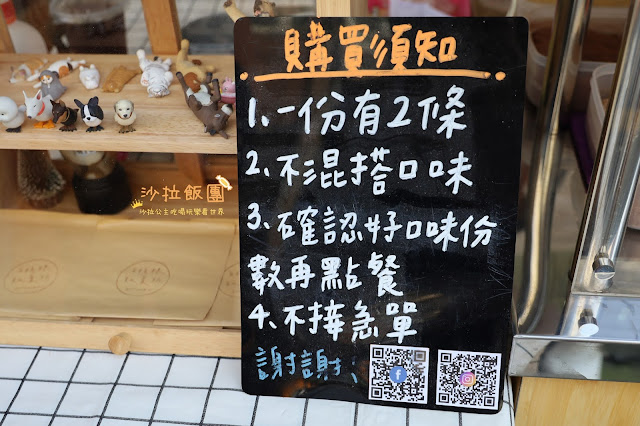 購買須知
1、一份有2條
2、不混搭口味
3、確認好口味份
數再點餐
4、不接急單
謝謝:
沙拉飯團
沙拉公主吃喝玩樂看世界